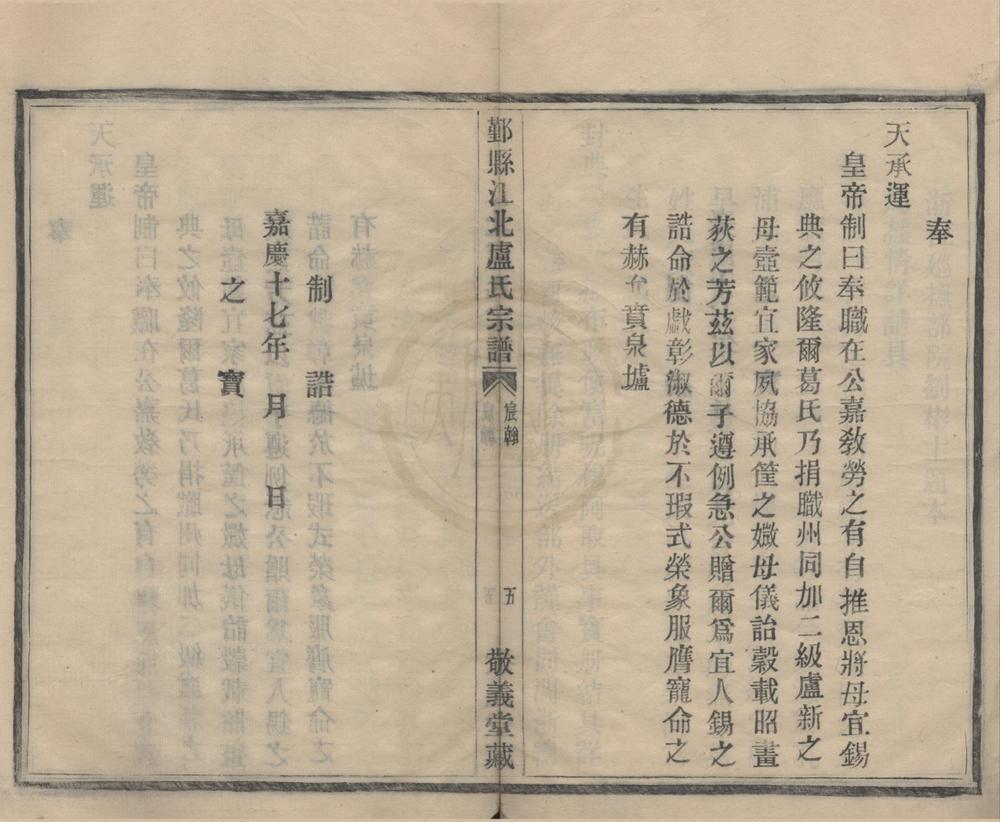 奉
天承運
皇帝制曰奉職在公嘉教勞之有自推恩將母宜錫
典之攸隆爾葛氏乃捐職州同加二級盧新之
母壼範宜家夙協承筐之媺母儀詒穀載昭畫
荻之芳茲以爾子遵例急公贈爾爲宜人錫之
誥命於戲彰淑德於不瑕式榮象服膺寵命之
有赫允賁泉壚
鄞縣江北盧氏宗譜
宸翰
五
敬義堂藏
制誥
嘉慶十七年 月 日
之寶